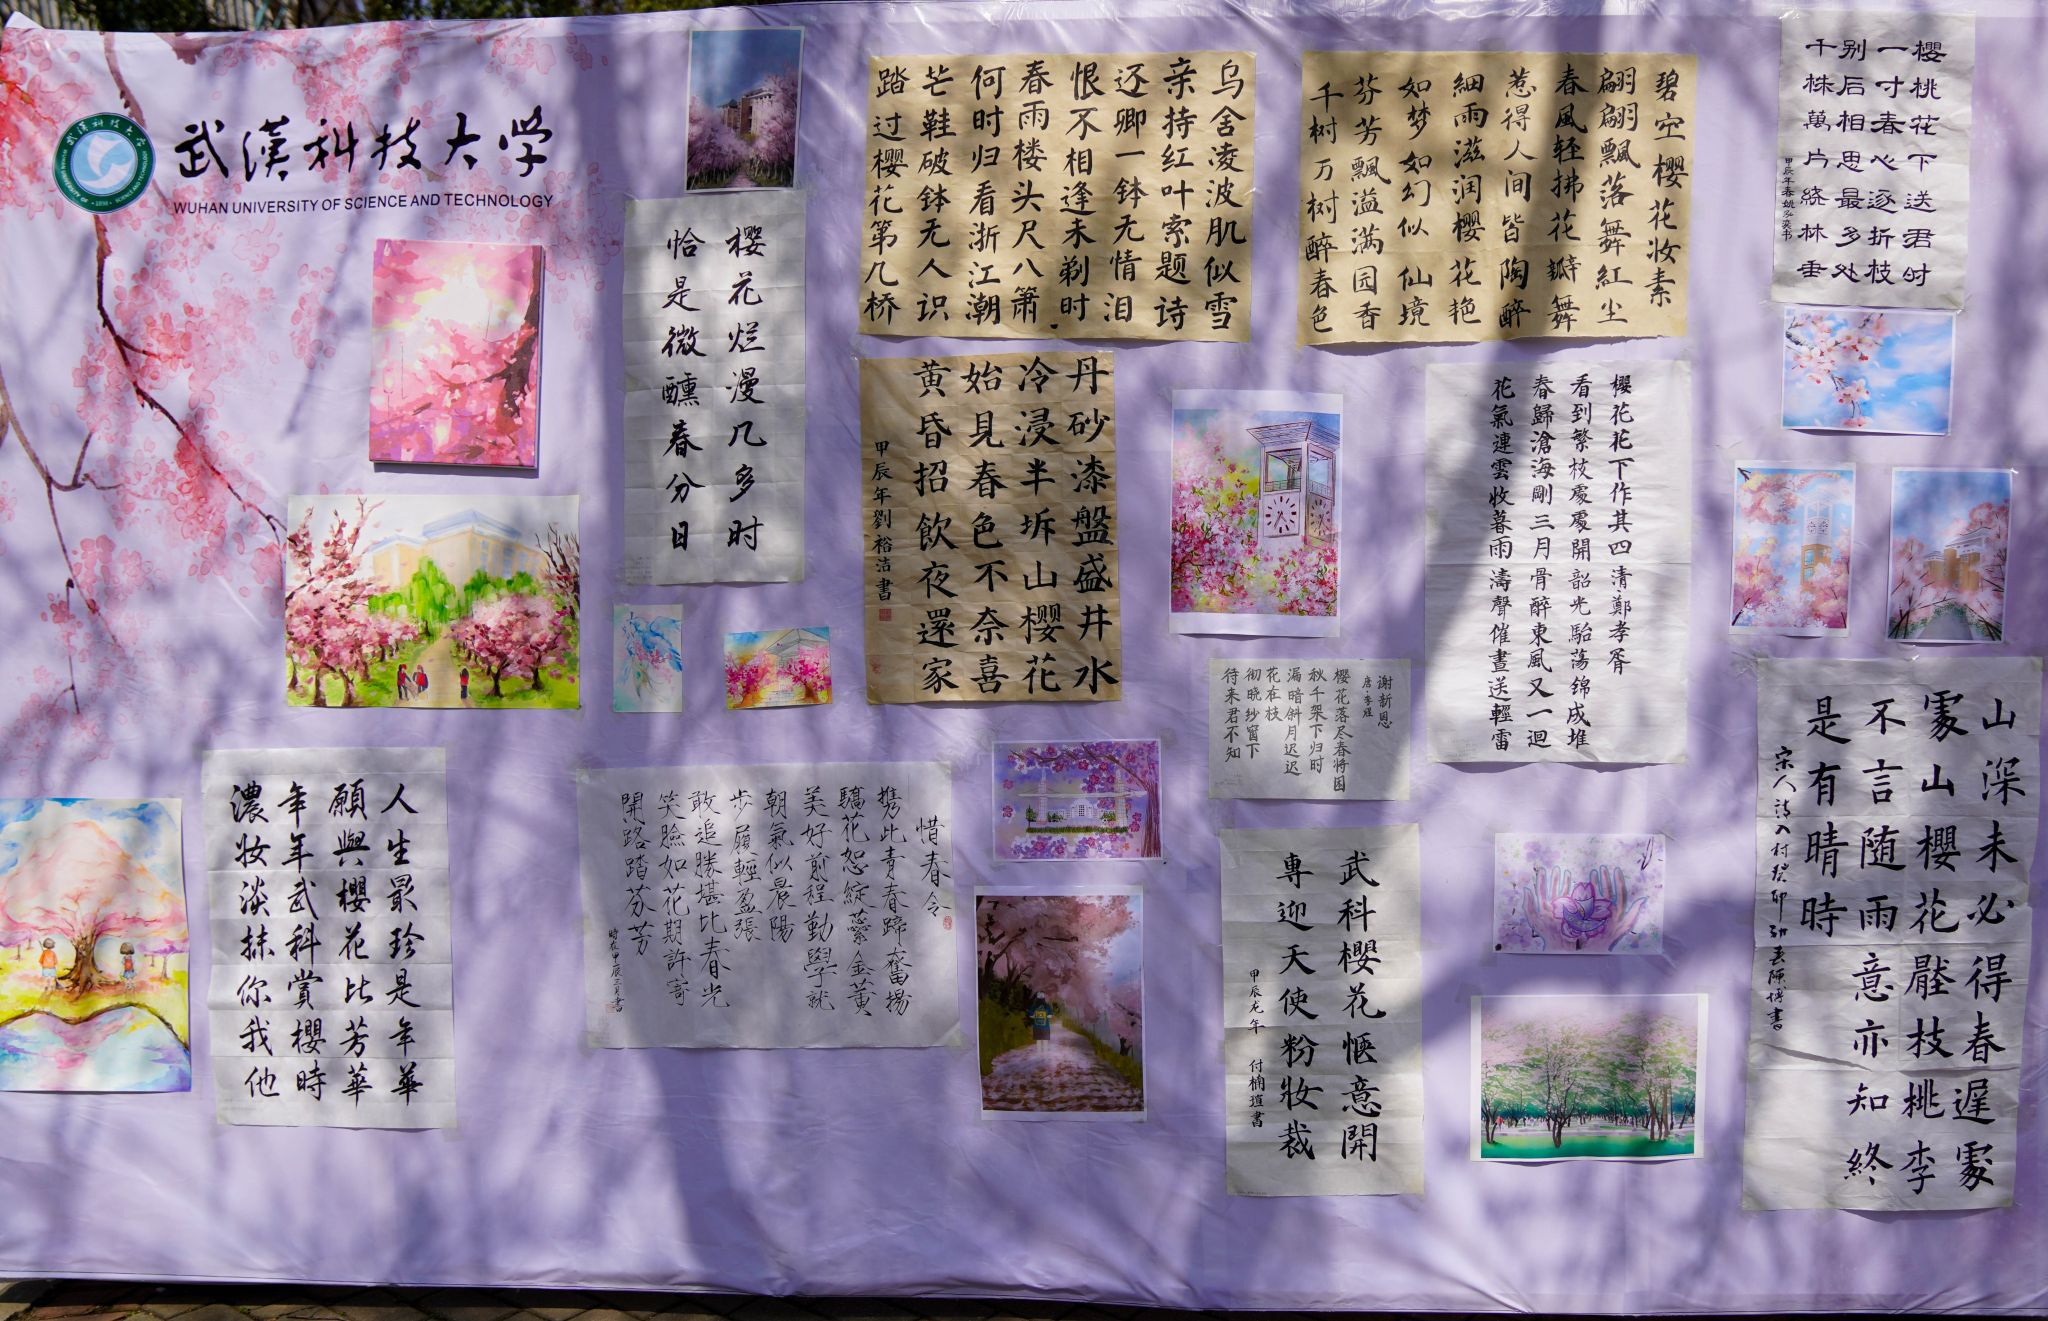 武漢科技大学
WUHAN UNIVERSITY OF SCIENCE AND TECHNOLOGY
櫻花烂漫几多时
恰是微醺春分日
乌舍凌波肌似雪
亲持红叶索题诗
还卿一钵无情泪
恨不相逢未剃时
春雨楼头尺八箫
何时归看浙江潮
芒鞋破钵无人识
踏过樱花第几桥
碧空樱花妆素
翩翩飄落舞紅尘
春風轻拂花瓣舞
惹得人间皆陶醉
細雨滋润櫻花艳
如梦如幻似仙境
芬芳飄溢满园香
千树万树醉春色
櫻桃花下送君时
一寸春心逐折枝
别后相思最多处
千株萬片绕林垂
甲辰年春姚弘奕书
丹砂漆盤盛井水
冷浸半坼山櫻花
始見春色不奈喜
黄昏招飲夜還家
甲辰年劉裕洁書
櫻花花下作其四 清·鄭孝胥
看到繁枝處處開韶光駘荡錦成堆
春歸滄海剛三月骨醉東風又一迴
花氣連雲收暮雨濤聲催晝送輕雷
谢新恩
唐·李煜
櫻花落尽春将困
秋千架下归时
漏暗斜月迟迟
花在枝
彻晓纱窗下
待来君不知
人生最珍是年華
願與櫻花比芳華
年年武科賞櫻時
濃妝淡抹你我他
惜春令
携此青春蹄奮揚
驕花恕綻蘂金黄
美好前程勤學就
朝氣似晨陽
步履輕盈張
敢追勝堪比春光
笑臉如花期許寄
開路踏芬芳
時在甲辰三月書
武科櫻花愜意開
專迎天使粉妝裁
甲辰龙年 付楠瑄書
山深未必得春遲處
處山櫻花壓枝桃李
不言随雨意亦知終
是有晴時
宋人詩入村癸卯初春陳博書